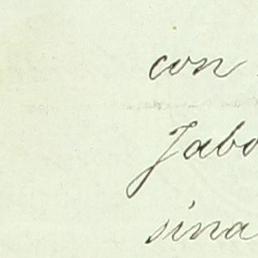 con
Jabo
sina